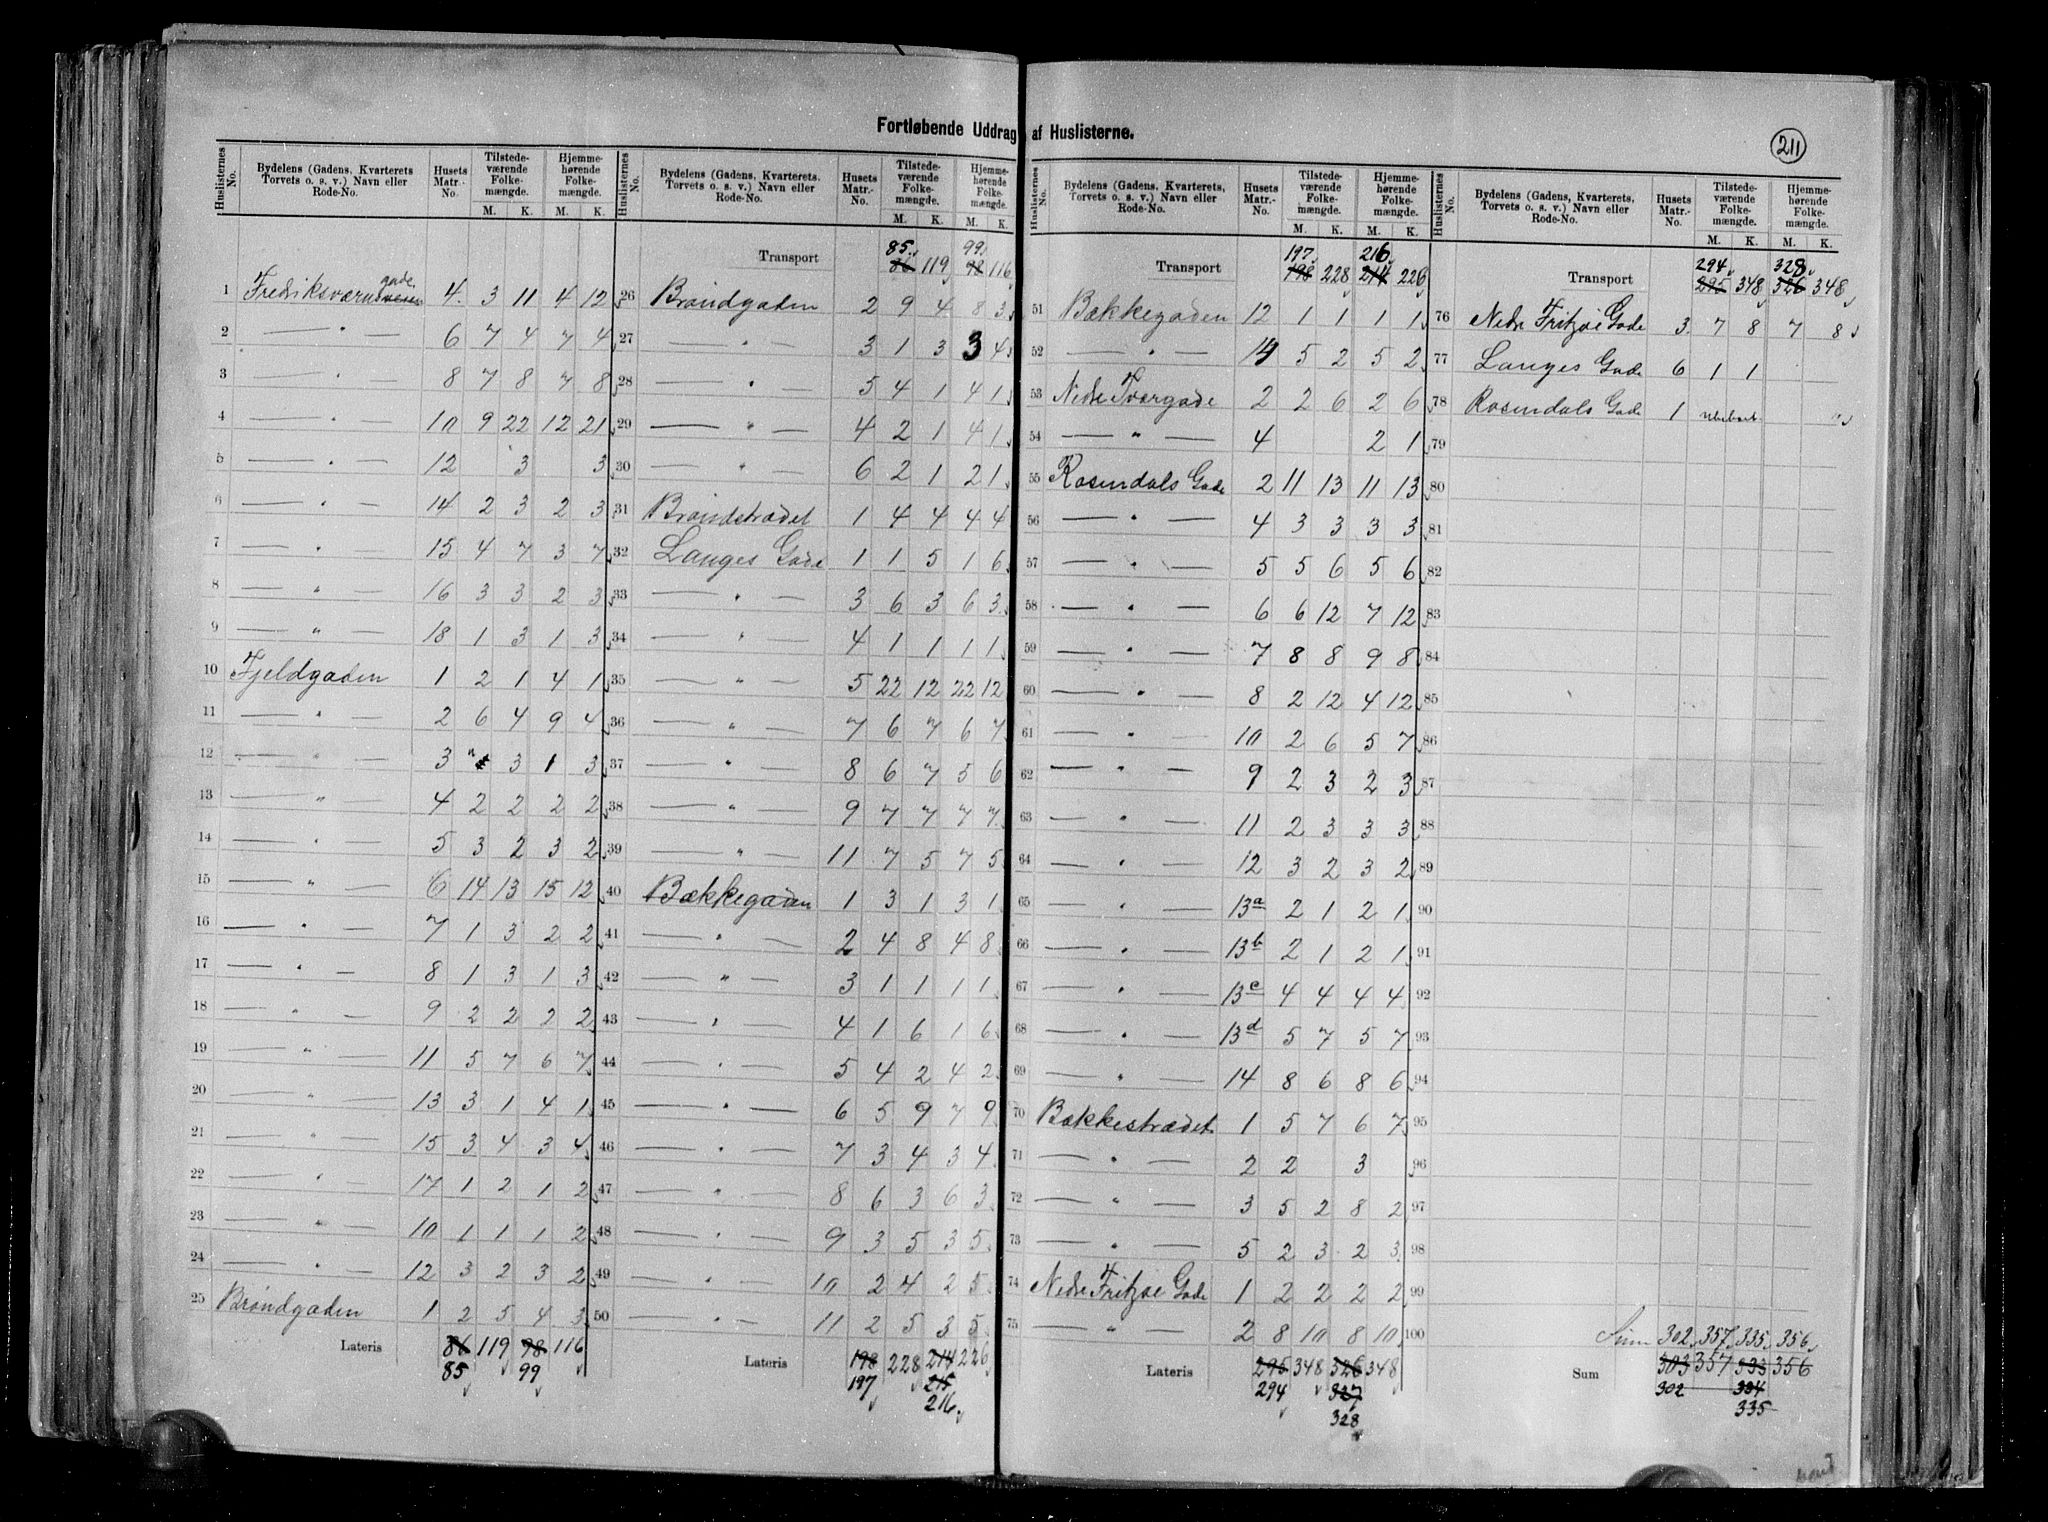 Fortløbende Uddrag af Huslisterne.
211
Huslisternes No. | Bydelens (Gadens, Kvarterets Torvets o. s. v.) Navn eller Rode-No. | Husets Matr.-No. | Tilstedeværende Folkemængde. M. K. | Hjemmehørende Folkemængde. M. K.
1 Fredriksværns gade 4. 3 11 4 12
2 — " — 6 7 4 7 4
3 — " — 8 7 8 7 8
4 — " — 10 9 22 12 21
5 — " — 12 3 3
6 — " — 14 2 3 2 3
7 — " — 15 4 7 3 7
8 — " — 16 3 3 2 3
9 — " — 18 1 3 1 3
10 Fjeldgaden 1 2 1 4 1
11 — " — 2 6 4 9 4
12 — " — 3 " 3 1 3
13 — " — 4 2 2 2 2
14 — " — 5 3 2 3 2
15 — " — 6 14 13 15 12
16 — " — 7 1 3 2 2
17 — " — 8 1 3 1 3
18 — " — 9 2 2 2 2
19 — " — 11 5 7 6 7
20 — " — 13 3 1 4 1
21 — " — 15 3 4 3 4
22 — " — 17 1 2 1 2
23 — " — 10 1 1 1 2
24 — " — 12 3 2 3 2
25 Brøndgaden 1 2 5 4 3
Lateris 86 119 98 116
85 99
Huslisternes No. | Bydelens (Gadens, Kvarterets. Torvets o. s. v.) Navn eller Rode-No. | Husets Matr.-No. | Tilstedeværende Folkemængde. M. K. | Hjemmehørende Folkemængde. M. K.
85. 99.
Transport 86 119 98 116
26 Brøndgaden 2 9 4 8 3
27 — " — 3 1 3 3 4
28 — " — 5 4 1 4 1
29 — " — 4 2 1 4 1
30 — " — 6 2 1 2 1
31 Brøndstrædet 1 4 4 4 4
32 Langes Gade 1 1 5 1 6
33 — " — 3 6 3 6 3
34 — " — 4 1 1 1 1
35 — " — 5 22 12 22 12
36 — " — 7 6 7 6 7
37 — " — 8 6 7 5 6
38 — " — 9 7 7 7 7
39 — " — 11 7 5 7 5
40 Bækkegaden 1 3 1 3 1
41 — " — 2 4 8 4 8
42 — " — 3 1 1 1 1
43 — " — 4 1 6 1 6
44 — " — 5 4 2 4 2
45 — " — 6 5 9 7 9
46 — " — 7 3 4 3 4
47 — " — 8 6 3 6 3
48 — " — 9 3 5 3 5
49 — " — 10 2 4 2 5
50 — " — 11 2 5 3 5
Lateris 198 228 214 226
197 215
216
Huslisternes No. | Bydelens (Gadens, Kvarterets, Torvets o. s. v.) Navn eller Rode-No. | Husets Matr.-No. | Tilstedeværende Folkemængde. M. K. | Hjemmehørende Folkemængde. M. K.
197 216
Transport 198 228 214 226
51 Bækkegaden 12 1 1 1 1
52 — " — 14 5 2 5 2
53 Nedre Tvergade 2 2 6 2 6
54 — " — 4 2 1
55 Rosendals Gade 2 11 13 11 13
56 — " — 4 3 3 3 3
57 — " — 5 5 6 5 6
58 — " — 6 6 12 7 12
59 — " — 7 8 8 9 8
60 — " — 8 2 12 4 12
61 — " — 10 2 6 5 7
62 — " — 9 2 3 2 3
63 — " — 11 2 3 3 3
64 — " — 12 3 2 3 2
65 — " — 13a 2 1 2 1
66 — " — 13b 2 1 2 1
67 — " — 13c 4 4 4 4
68 — " — 13d 5 7 5 7
69 — " — 14 8 6 8 6
70 Bækkestrædet 1 5 7 6 7
71 — " — 2 2 3
72 — " — 3 5 2 8 2
73 — " — 5 2 3 2 3
74 Nedre Fritzøe Gade 1 2 2 2 2
75 — " — 2 8 10 8 10
Lateris 295 348 326 348
294 327
328
Huslisternes No. | Bydelens (Gadens, Kvarterets, Torvets o. s. v.) Navn eller Rode-No. | Husets Matr.-No. | Tilstedeværende Folkemængde. M. K. | Hjemmehørende Folkemængde. M. K.
294 328
Transport 295 348 326 348
76 Nedre Fritzøe Gade 3 7 8 7 8
77 Langes Gade 6 1 1
78 Rosendals Gade 1 ubeboet "
79
80
81
82
83
84
85
86
87
88
89
90
91
92
93
94
95
96
97
98
99
100
Sum 302 357 335 356
Sum 303 357 333 356
302 334
335